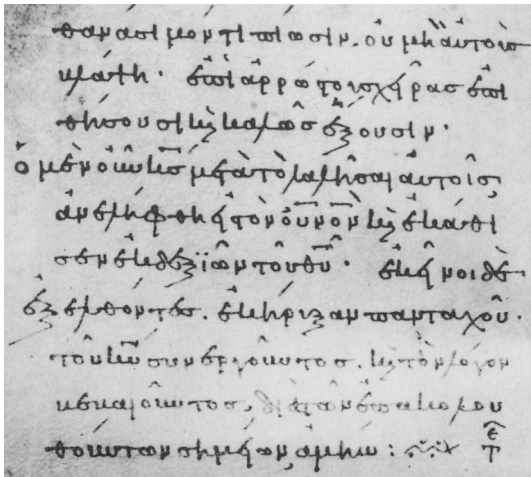 θανάσιμόν τι πίωσιν. οὐ μὴ αὐτοὺς
βλάψη· ἐπὶ ἀρρώστους χεῖρας ἐπι
θήσουσι κ(αὶ) καλῶς ἕξουσιν·
ὁ μὲν οὖν κ̅ς̅ μετὰ τὸ λαλῆσαι αὐτοῖς
ἀνελήφθη εἰς τὸν ο̅υ̅ν̅ο̅ν̅ κ(αὶ) ἐκάθι
σεν ἐκ δεξιῶν τοῦ θ̅υ̅· ἐκεῖνοι δὲ
ἐξελθόντες. ἐκήρυξαν πανταχοῦ·
τοῦ κ̅υ̅ συνεργοῦντος. κ(αὶ) τὸν λόγον
βεβαιοῦντος, διὰ τῶν ἐπακολου
θούντων σημείων, ἀμήν: